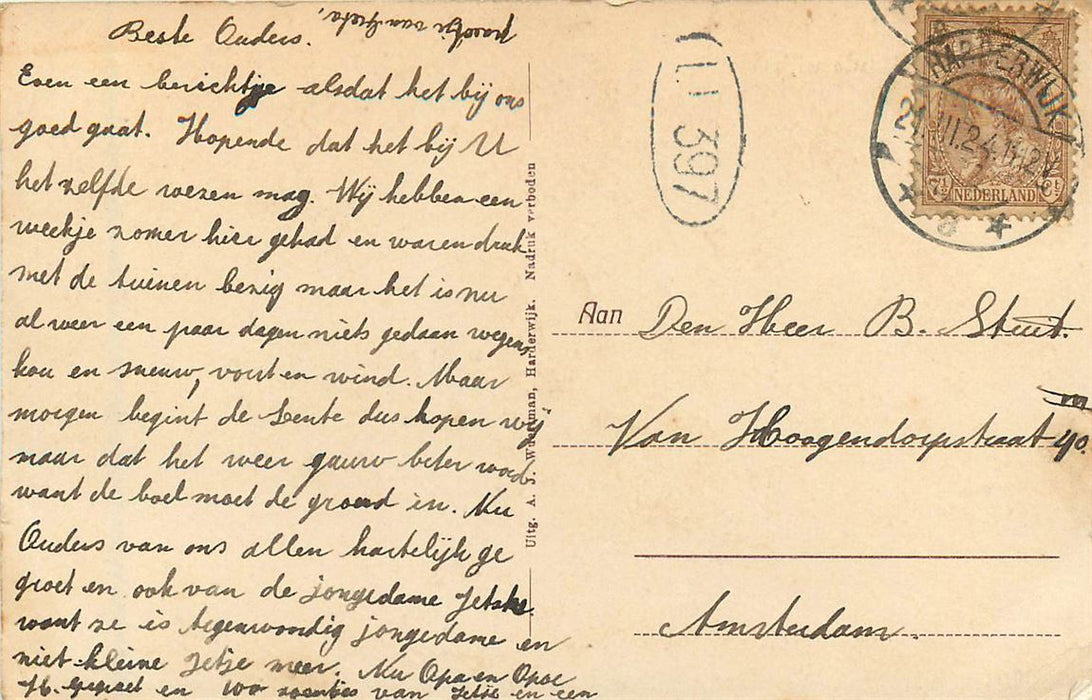 Beste Ouders.
Even een berichtje alsdat het bij ons
goed gaat. Hopende dat het bij U
het zelfde wezen mag. Wij hebben een
weekje zomer hier gehad en waren druk
met de tuinen bezig maar het is nu
al weer een paar dagen niets gedaan wegens
kou en sneuw, vorst en wind. Maar
morgen begint de Lente dus hopen wij
maar dat het weer gauw beter word
want de boel moet de grond in. Nu
Ouders van ons allen hartelijk ge
groet en ook van de jongedame Jetske
want ze is tegenwoordig jongedame en
niet kleine Jetje meer. Nu Opa en Opoe
H. gegroet en 100 zoentjes van Jetje en een
van Greta,
Uitg. A. S. Harderwijk. Nadruk verboden
LJ 397
HARDERWIJK
7½ NEDERLAND
Aan Den Heer B. Stuut.
Van Hoogendorpstraat 90.
Amsterdam.